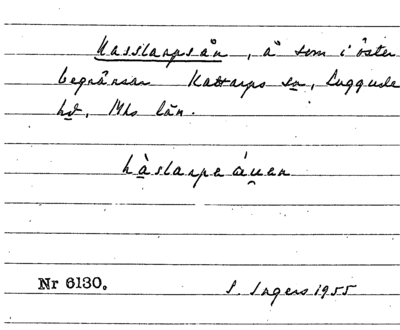 Hasslarpsån, å som i öster
begränsar Kattarps sn, Luggude
hd, Mhs län.
hàslarpa áuen
Nr 6130.
S. Ingers 1955